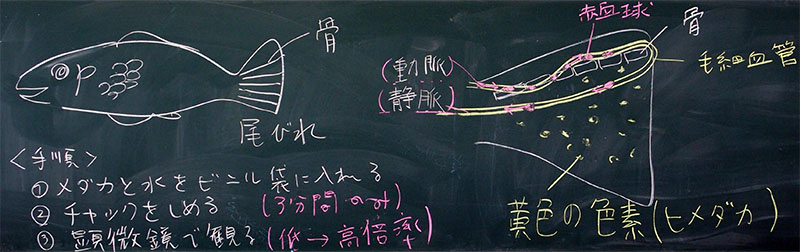 骨
尾びれ
<手順>
① メダカと水をビニル袋に入れる
② チャックをしめる (3分間のみ)
③ 顕微鏡で観る (低→高倍率)
赤血球
骨
(動脈)
(静脈)
毛細血管
黄色の色素(ヒメダカ)